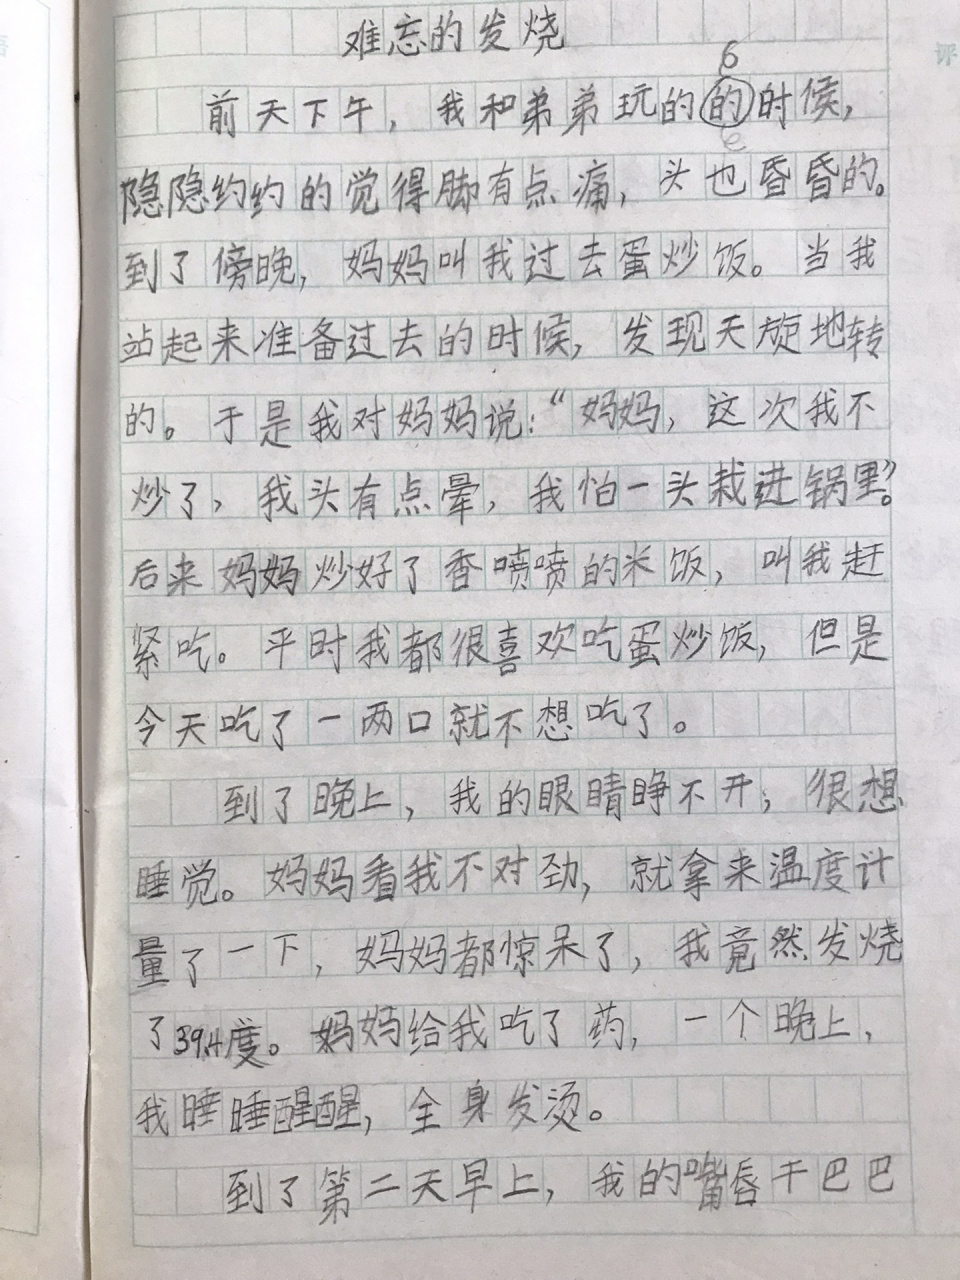 难忘的发烧
前天下午，我和弟弟玩的的时候，
隐隐约约的觉得脚有点痛，头也昏昏的。
到了傍晚，妈妈叫我过去蛋炒饭。当我
站起来准备过去的时候，发现天旋地转
的。于是我对妈妈说：“妈妈，这次我不
炒了，我头有点晕，我怕一头栽进锅里。”
后来妈妈炒好了香喷喷的米饭，叫我赶
紧吃。平时我都很喜欢吃蛋炒饭，但是
今天吃了一两口就不想吃了。
到了晚上，我的眼睛睁不开，很想
睡觉。妈妈看我不对劲，就拿来温度计
量了一下，妈妈都惊呆了，我竟然发烧
了39.4度。妈妈给我吃了药，一个晚上，
我睡睡醒醒，全身发烫。
到了第二天早上，我的嘴唇干巴巴